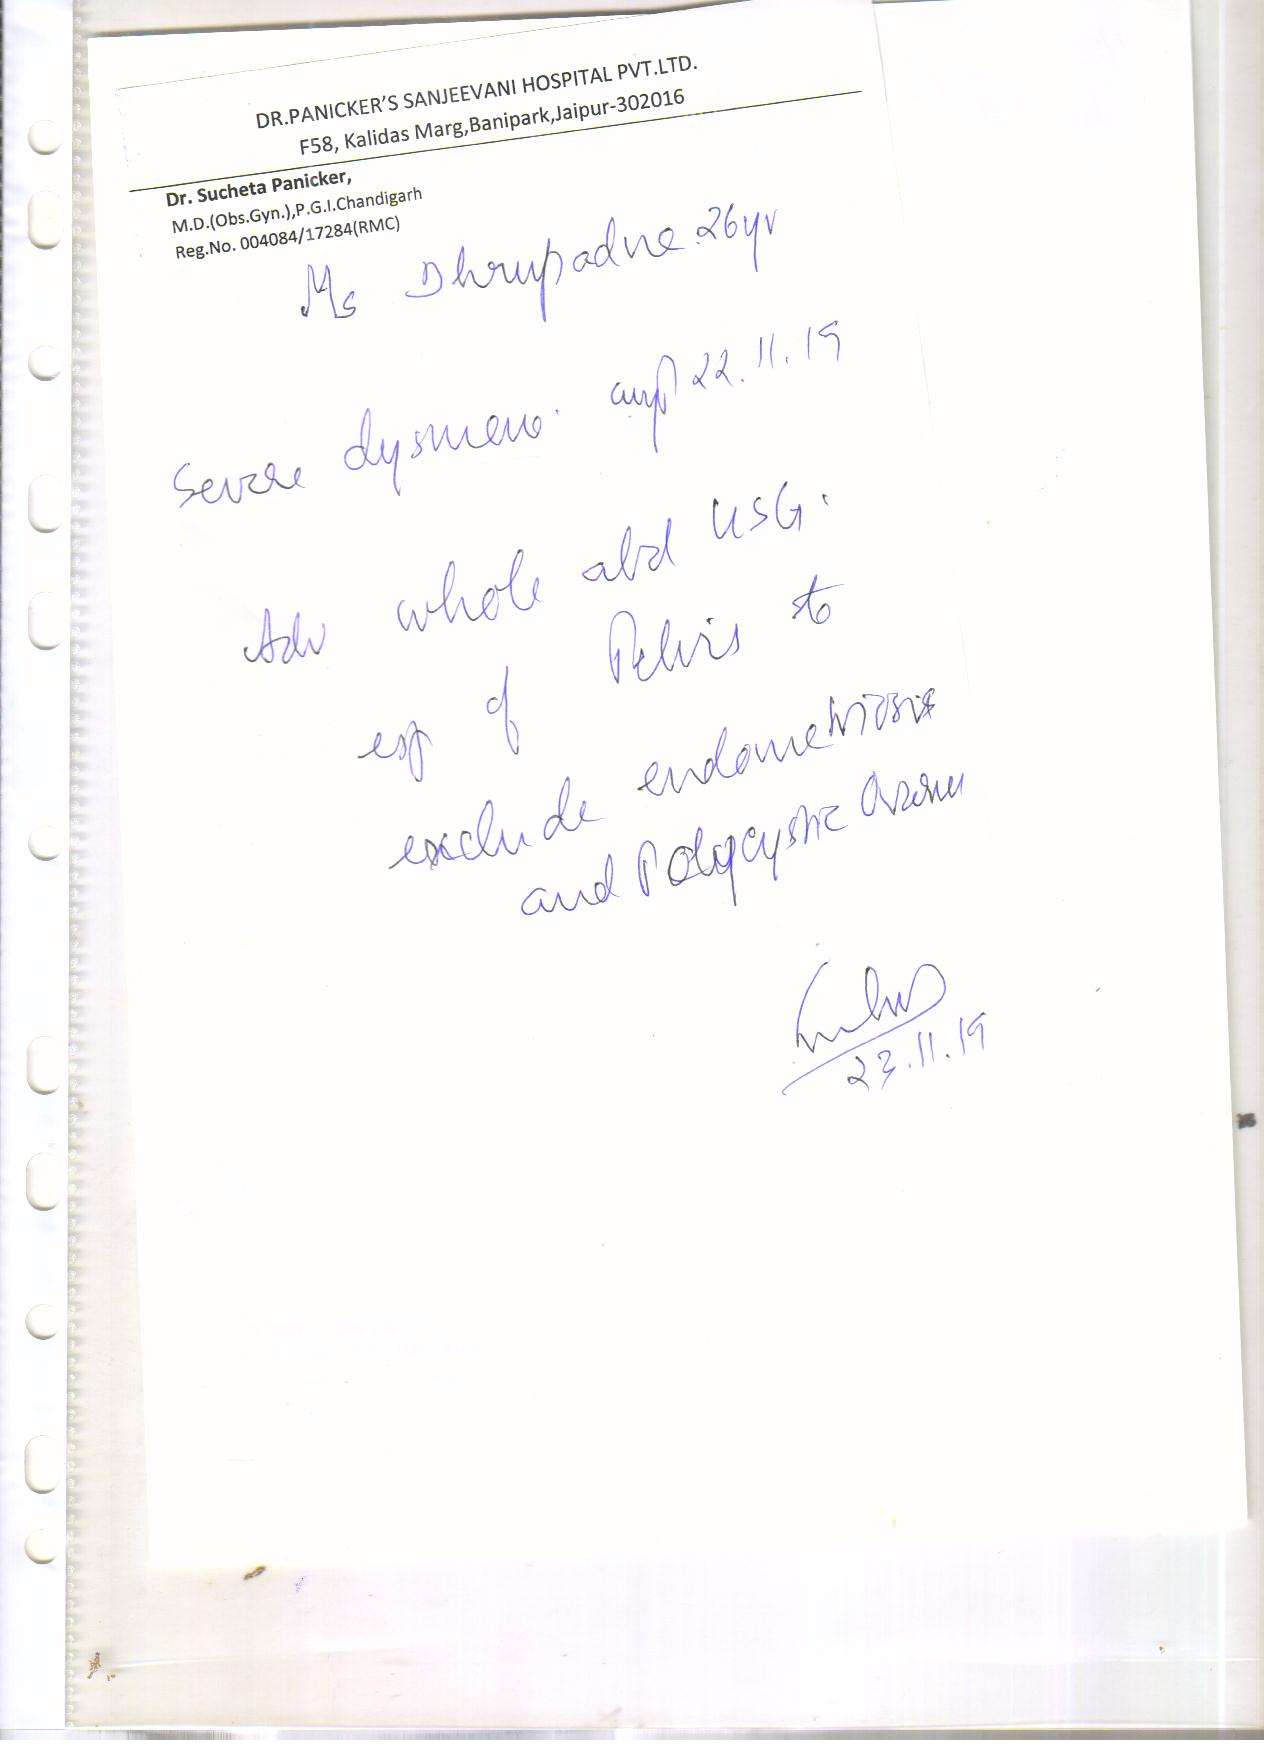 DR.PANICKER'S SANJEEVANI HOSPITAL PVT.LTD.
F58, Kalidas Marg,Banipark,Jaipur-302016
Dr. Sucheta Panicker,
M.D.(Obs.Gyn.),P.G.I.Chandigarh
Reg.No. 004084/17284(RMC)
Ms Dhrupadne 26yr
Severe dysmeno. 22.11.19
Adv whole abd USG.
esp of Pelvis to
exclude endometriosis
and Polycystic
23.11.19